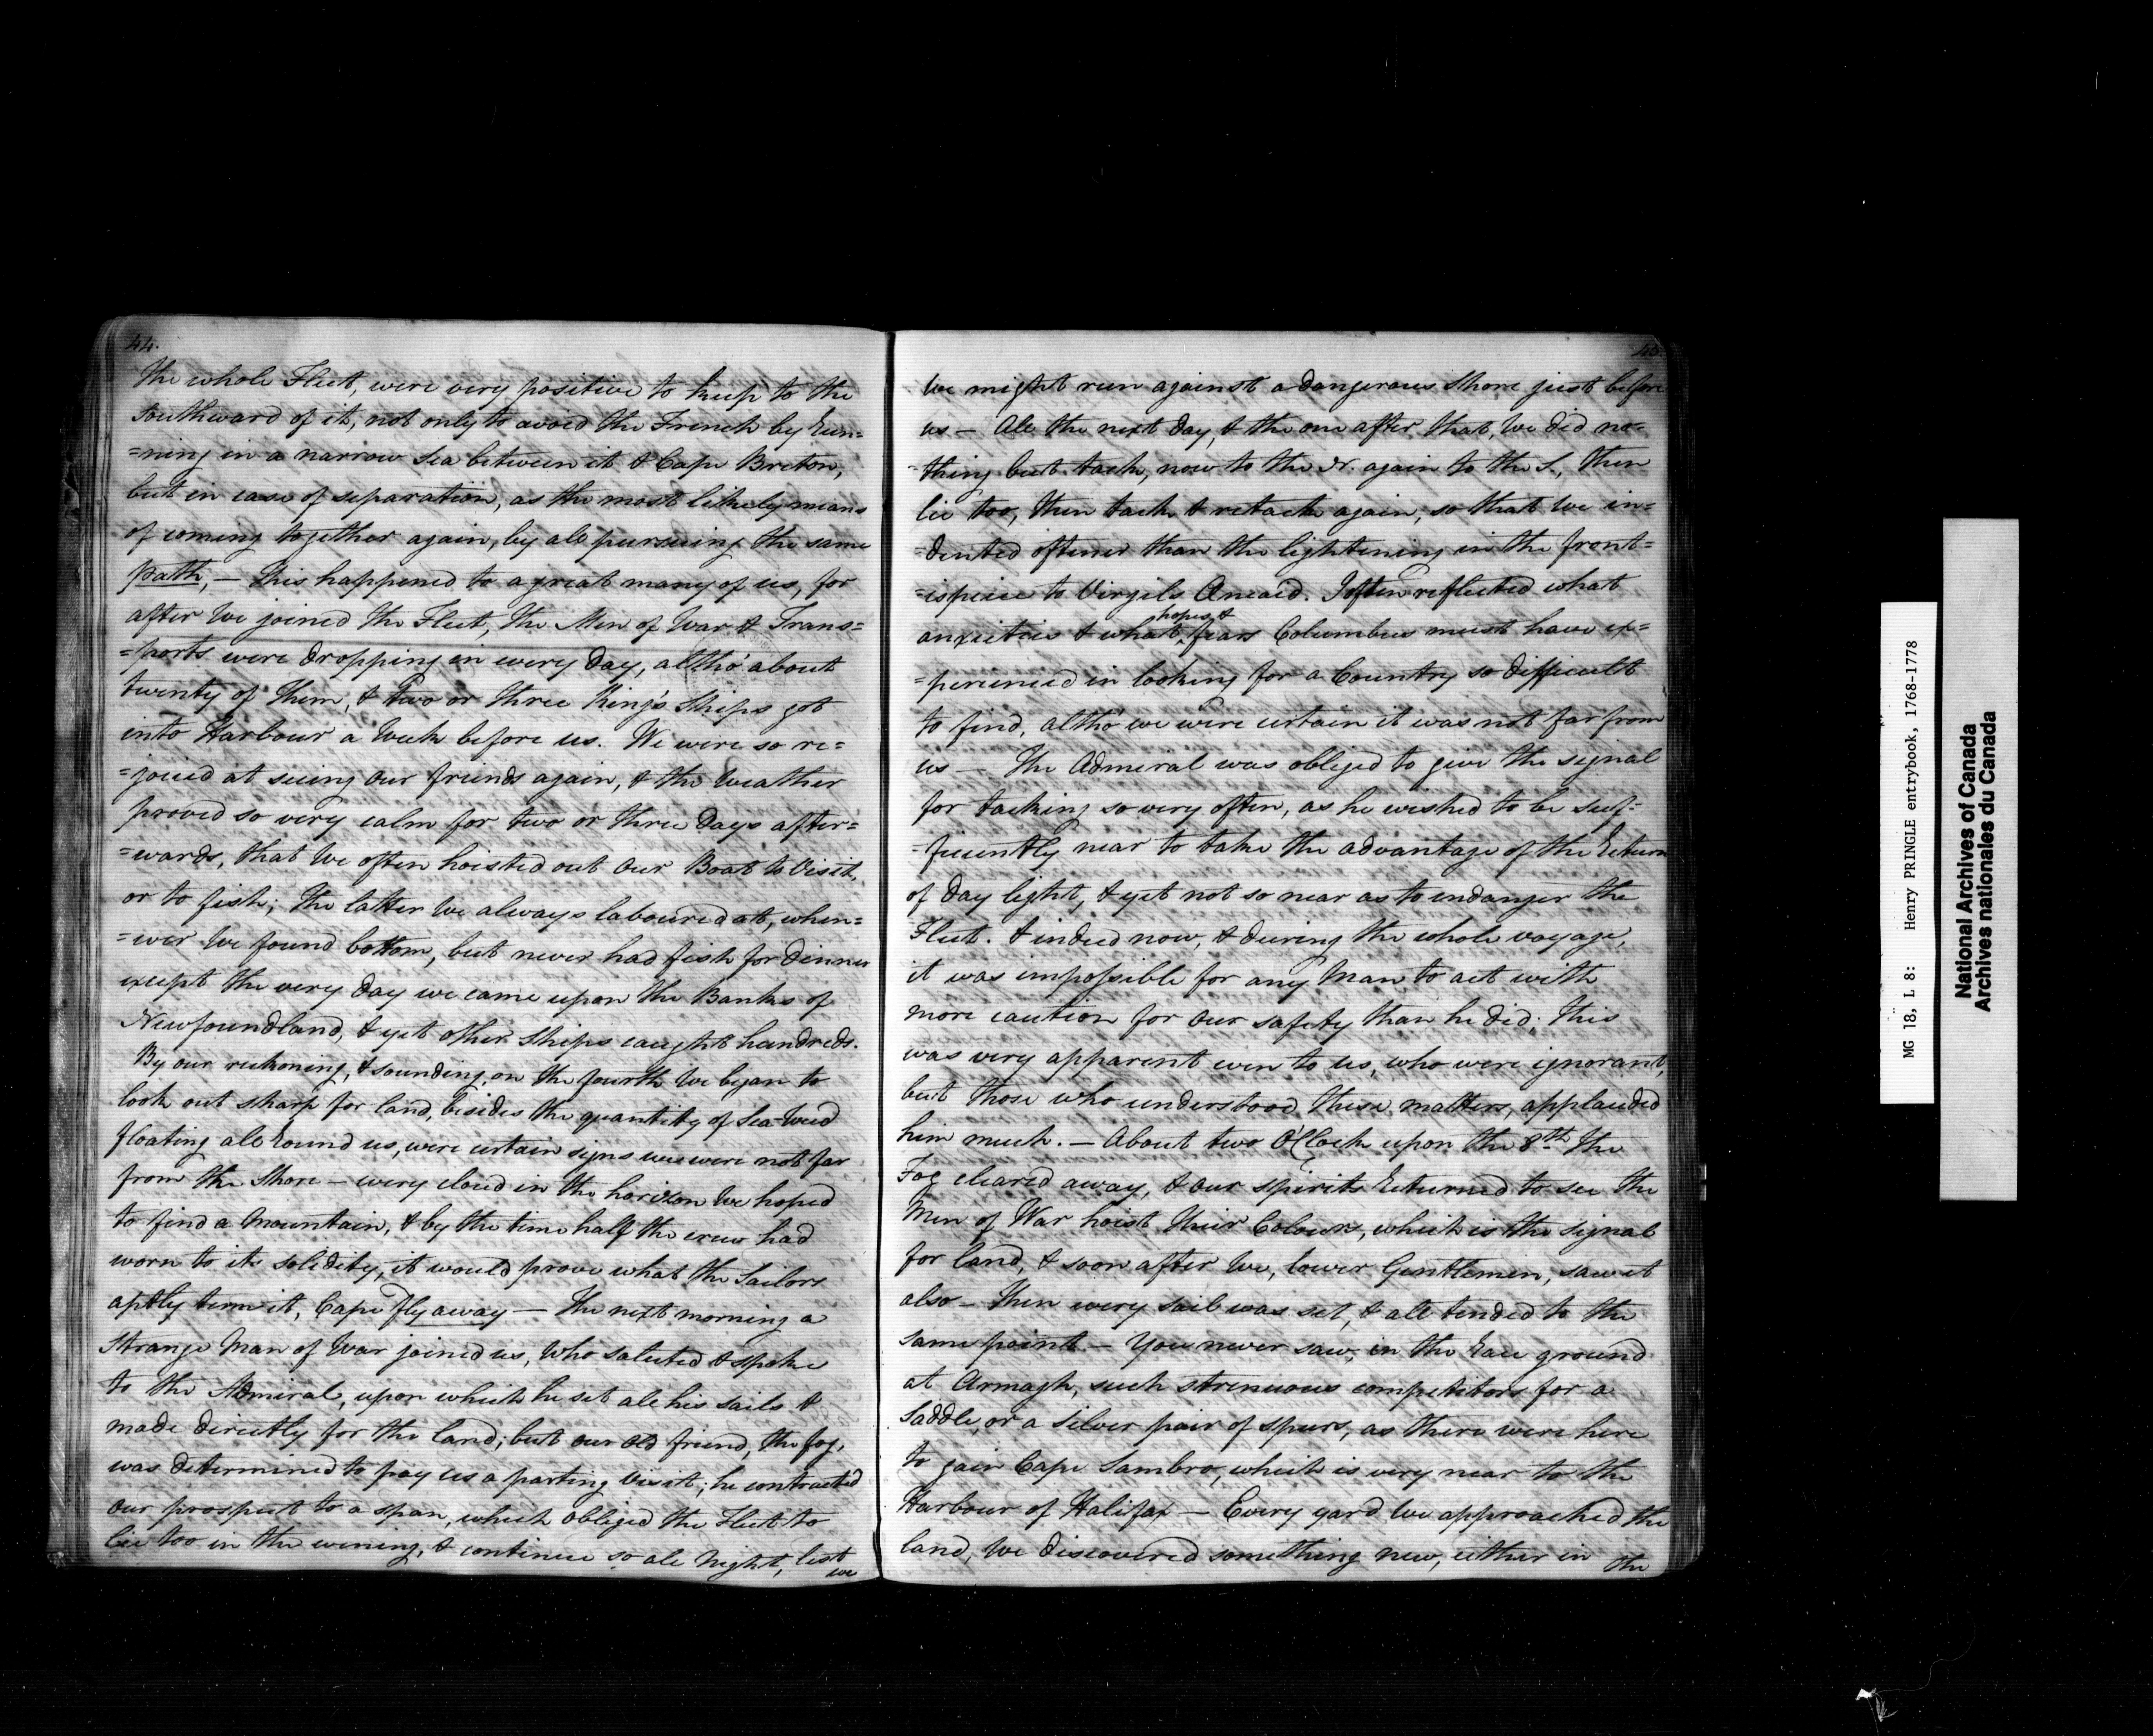 44.
the whole Fleet, were very positive to keep to the
Southward of it, not only to avoid the French by Run=
=ning in a narrow Sea between it & Cape Breton,
but in case of separation, as the most likely means
of coming together again, by all pursuing the same
path, — This happened to a great many of us, for
after we joined the Fleet, the Men of War & Trans=
=ports were dropping in every day, altho' about
twenty of them, & two or three King's Ships got
into Harbour a Week before us. We were so re=
=joiced at seeing our friends again, & the Weather
proved so very calm for two or three days after=
=wards, that we often hoisted out our Boat to Visit,
or to fish; The latter We always laboured at, when=
=ever We found bottom, but never had fish for dinner
except the very day we came upon the Banks of
Newfoundland, & yet other Ships caught hundreds.
By our reckoning, & sounding, on the fourth We began to
look out sharp for land, besides the quantity of Sea-Weed
floating all round us, were certain signs we were not far
from the Shore — every cloud in the horizon We hoped
to find a Mountain, & by the time half the crew had
worn to its solidity, it would prove what the Sailors
aptly term it, Cape fly away — The next morning a
Strange Man of War joined us, Who saluted & spoke
to the Admiral, upon which he set all his sails &
made directly for the land; but our old friend, the fog,
was determined to pay us a parting Visit; he contracted
our prospect to a span, which obliged the Fleet to
lie too in the evening, & continue so all Night, lest
we
45
We might run against a dangerous Shore just before
us — All the next day, & the one after that, We did no=
=thing but tack, now to the N. again to the S., then
lie too, then tack & retack again, so that We in=
=dented oftener than the lightening in the front=
=ispiece to Virgils Æneaid. I often reflected what
anxieties & what hopes & fears Columbus must have ex=
=perienced in looking for a Country so difficult
to find, altho' we were certain it was not far from
us — The Admiral was obliged to give the signal
for tacking so very often, as he wished to be suf=
=ficiently near to take the advantage of the Return
of day light, & yet not so near as to endanger the
Fleet. & indeed now, & during the whole voyage,
it was impossible for any Man to act with
more caution for our safety than he did; this
was very apparent even to us, who were ignorant,
but those who understood these matters, applauded
him much. — About two O'Clock upon the 8th. the
Fog cleared away, & our spirits Returned to see the
Men of War hoist their Colours, which is the signal
for land, & soon after We, lower Gentlemen, saw it
also — Then every sail was set, & all tended to the
same point. — You never saw, in the Race ground
at Armagh, such strenuous competitors for a
Saddle, or a Silver pair of spurs, as there were here
to gain Cape Sambro, which is very near to the
Harbour of Halifax — Every yard We approached the
land, We discovered something new, either in the
MG 18, L 8: Henry PRINGLE entrybook, 1768-1778
National Archives of Canada
Archives nationales du Canada